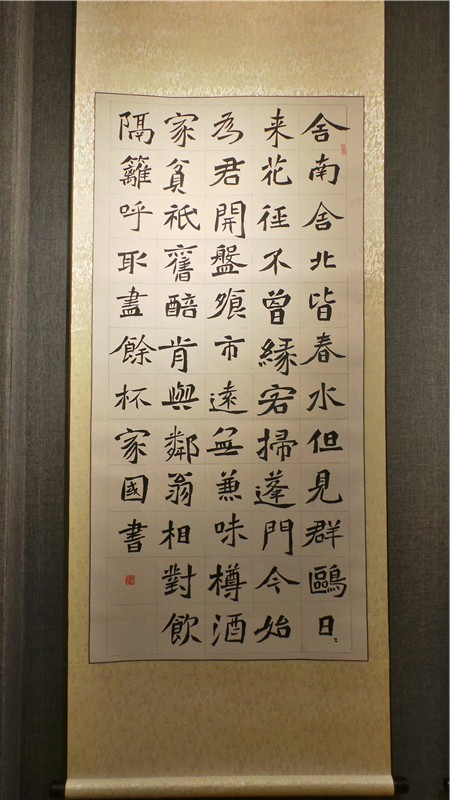 舍南舍北皆春水但見群鷗日〻
来花径不曾緣客掃蓬門今始
為君開盤飱市遠無兼味樽酒
家貧祇舊醅肯與鄰翁相對飲
隔籬呼取盡餘杯家國書